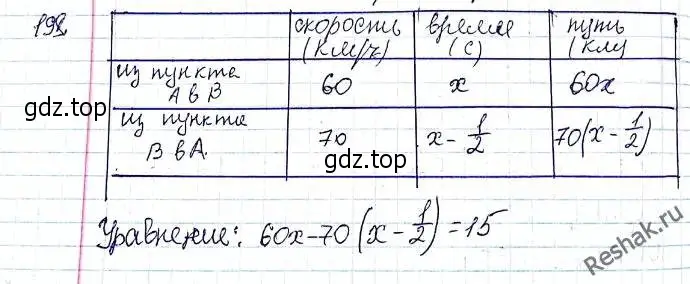 198
скорость (км/ч) время (с) путь (км)
из пункта А в В 60 x 60x
gdz.top
из пункта В в А. 70 x - 1/2 70(x - 1/2)
gdz.top
Уравнение: 60x-70(x - 1/2)=15
Reshak.ru